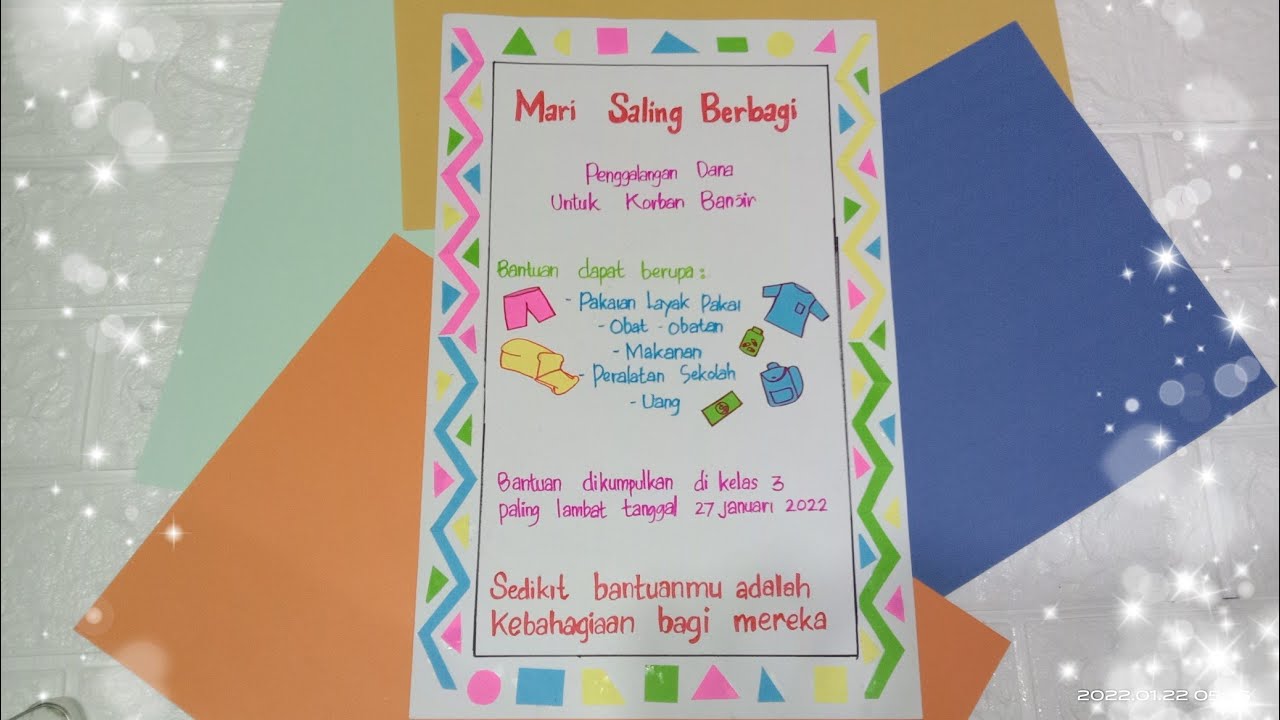 Mari Saling Berbagi
Penggalangan Dana
Untuk Korban Banjir
Bantuan dapat berupa :
- Pakaian Layak Pakai
- Obat - obatan
- Makanan
- Peralatan Sekolah
- Uang
Bantuan dikumpulkan di kelas 3
paling lambat tanggal 27 Januari 2022
Sedikit bantuanmu adalah
Kebahagiaan bagi mereka
2022.01.22